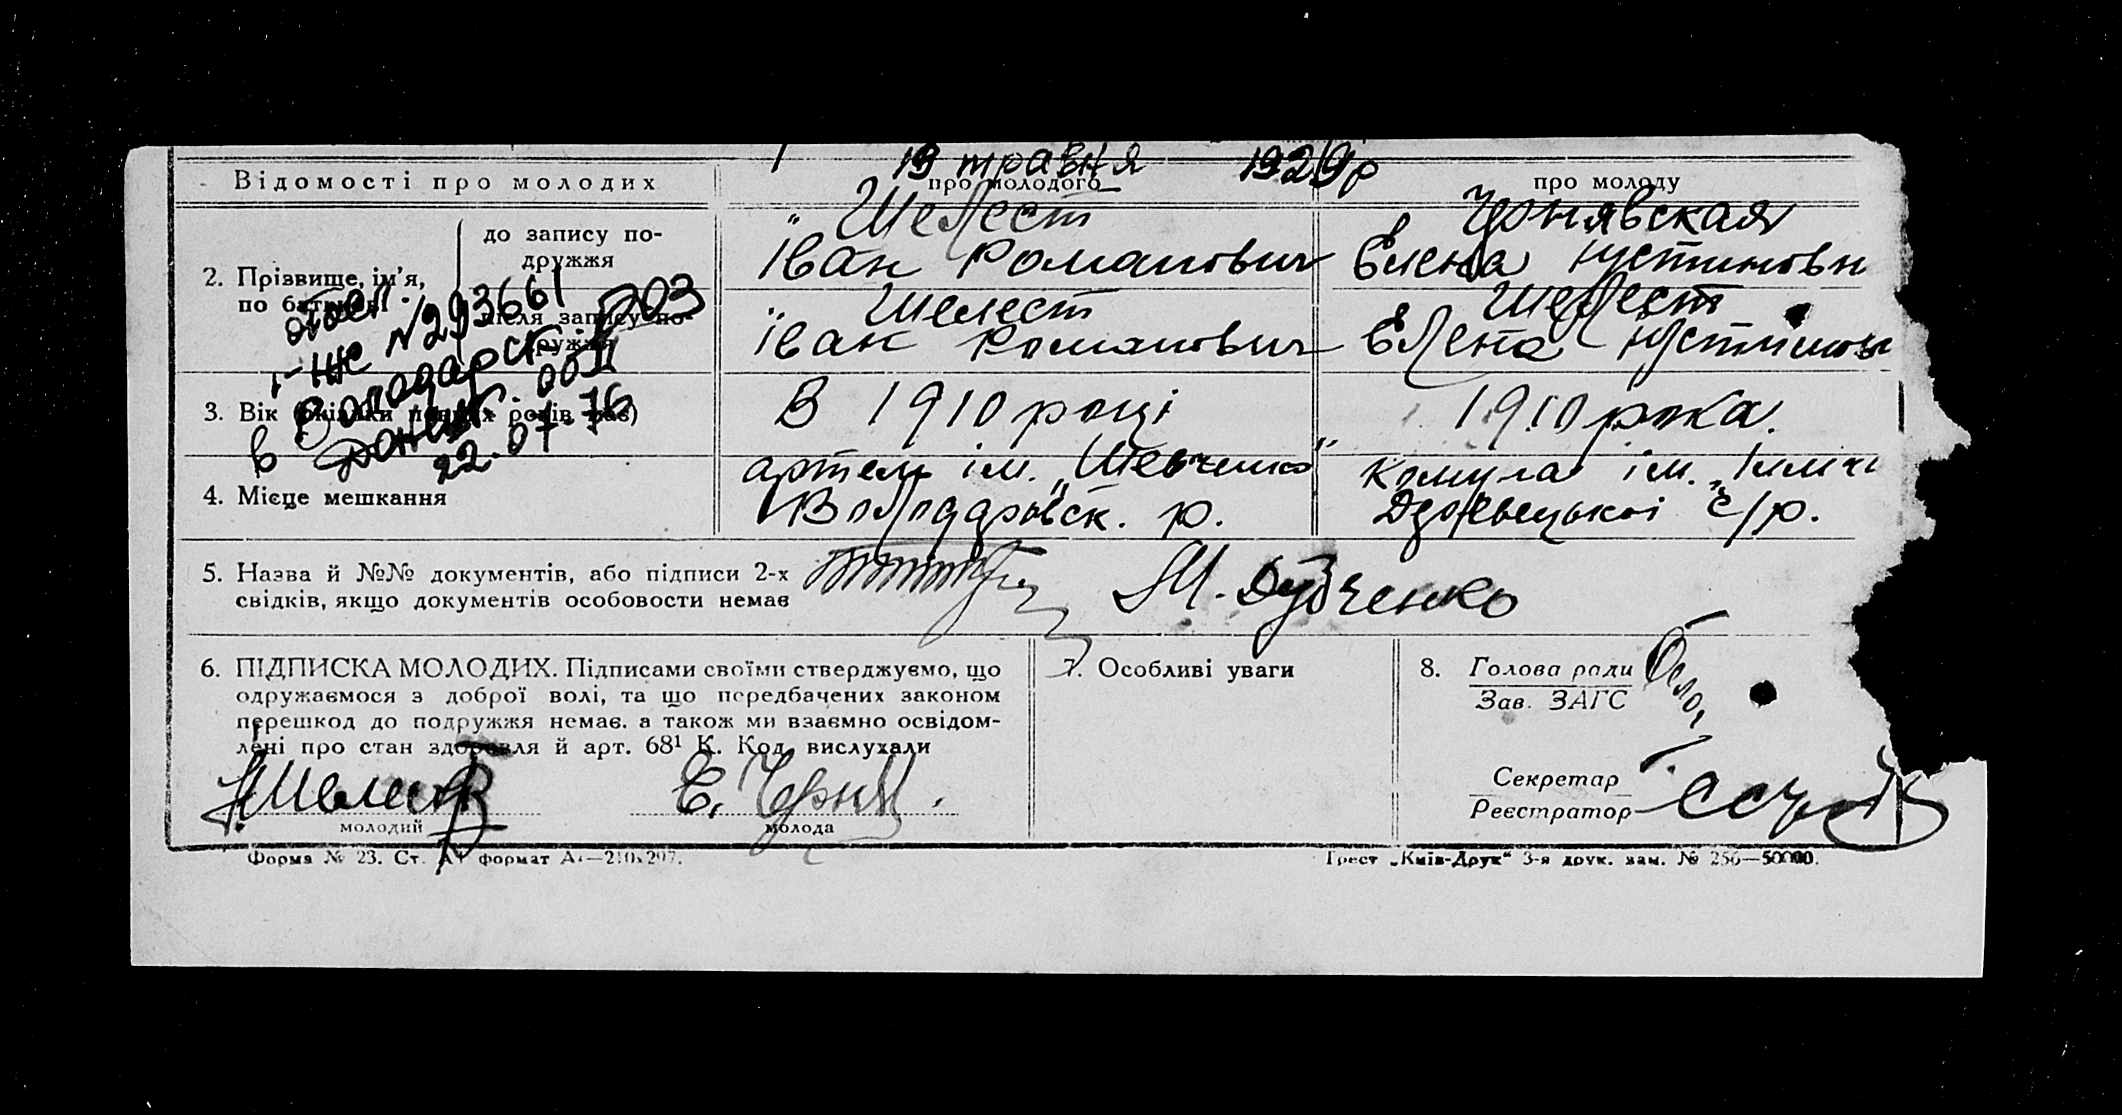 19 травня 1929 р
Відомості про молодих
про молодого
про молоду
2. Прізвище, ім'я,
по батькові
до запису по-
дружжя
Шелест
Іван Романович
Чернявская
Елена Юстиновн
після запису по-
дружжя
Шелест
Іван Романович
Шелест
Елена Юстинов
І-НЖ №293661
в Володарск.
Донецк.
22.07.76
3. Вік
В 1910 році
1910 рока.
4. Місце мешкання
артель ім. „Шевченко"
Володарськ. р.
комуна ім.
с/р.
5. Назва й №№ документів, або підписи 2-х
свідків, якщо документів особовости немає
М. Дубченко
6. ПІДПИСКА МОЛОДИХ. Підписами своїми стверджуємо, що
одружаємося з доброї волі, та що передбачених законом
перешкод до подружжя немає, а також ми взаємно освідом-
лені про стан здоровля й арт. 68¹ К. Код. вислухали
И Шелест
молодий
Е. Черня
молода
7. Особливі уваги
8. Голова ради
Зав. ЗАГС
Секретар
Реєстратор
Форма № 23. Ст. А4 формат А4—210x297.
Трест „Київ-Друк" 3-я друк. зам. № 256—50000.